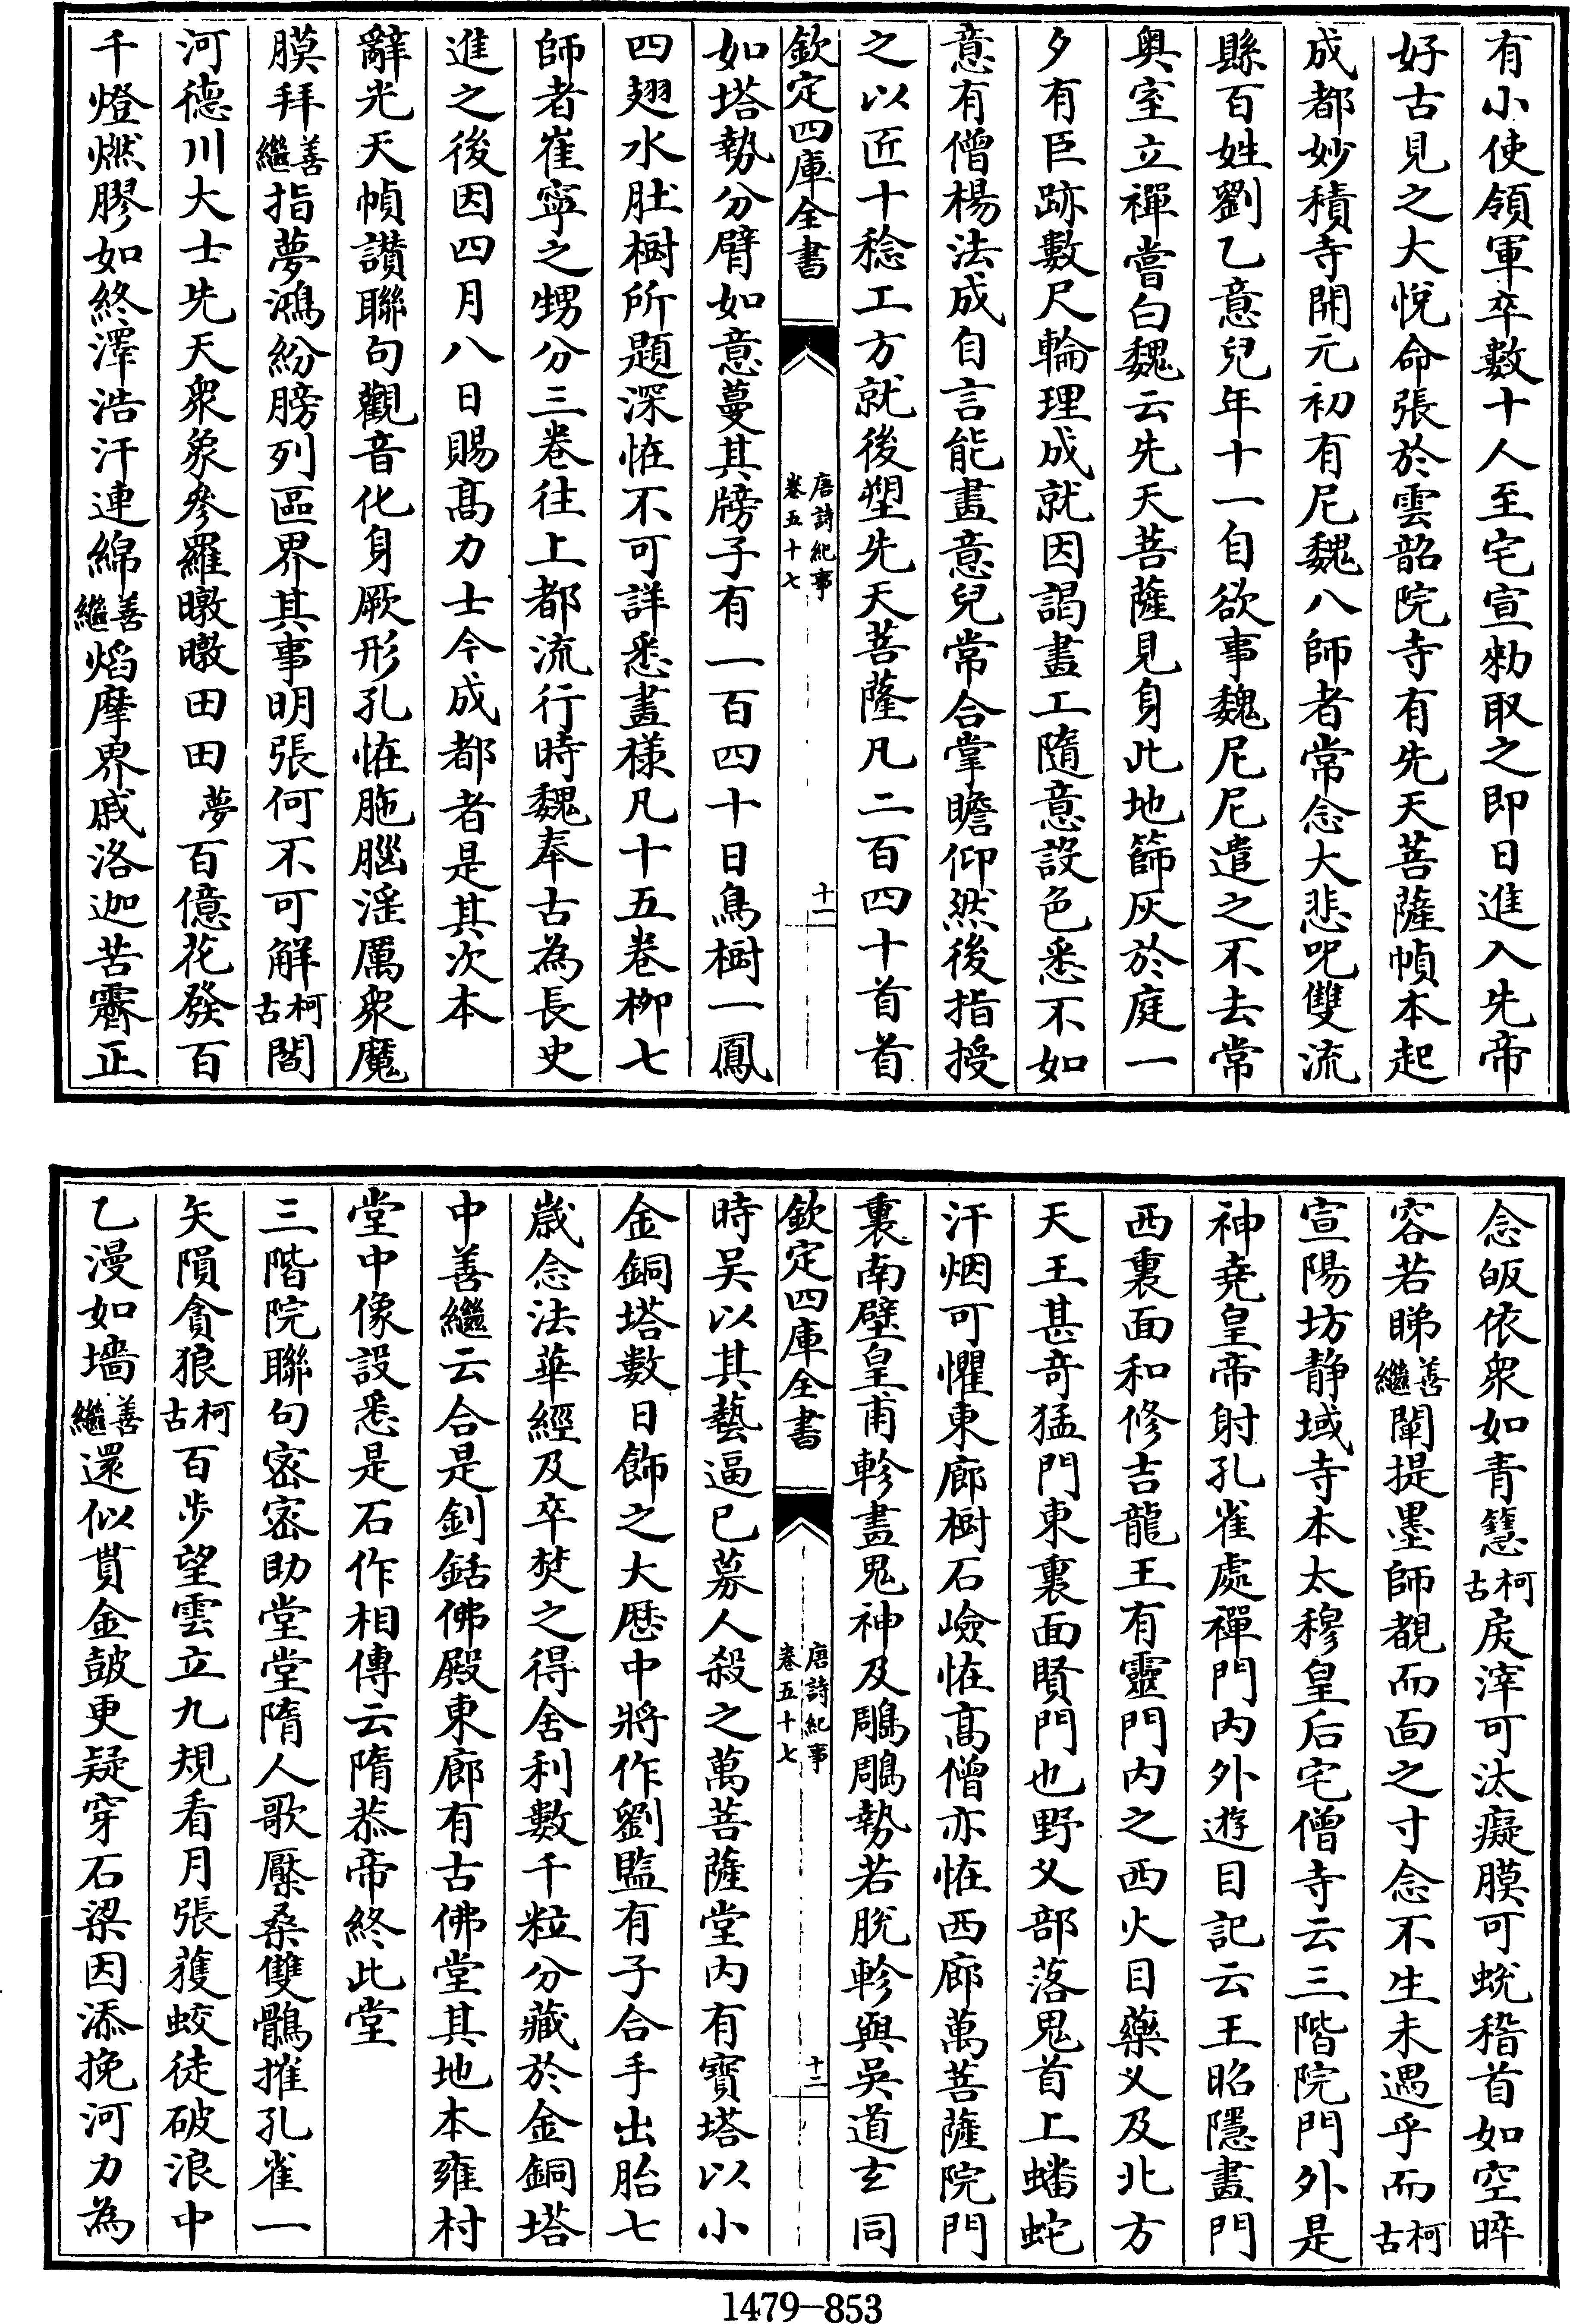 有小使領軍卒數十人至宅宣勑取之即日進入先帝
好古見之大悅命張於雲韶院寺有先天菩薩幀本起
成都妙積寺開元初有尼魏八師者常念大悲呪雙流
縣百姓劉乙意兒年十一自欲事魏尼尼遣之不去常
奥室立禪嘗白魏云先天菩薩見身此地篩灰於庭一
夕有巨跡數尺輪理成就因謁畫工隨意設色悉不如
意有僧楊法成自言能畫意兒常合掌瞻仰然後指授
之以匠十稔工方就後塑先天菩薩凡二百四十首首
欽定四庫全書
唐詩紀事
卷五十七
十一
如塔勢分臂如意蔓其牓子有一百四十日鳥樹一鳳
四翅水肚樹所題深怪不可詳悉畫樣凡十五卷柳七
師者崔寧之甥分三卷往上都流行時魏奉古為長史
進之後因四月八日賜髙力士今成都者是其次本
辭光天幀讃聯句觀音化身厥形孔怪胣腦淫厲衆魔
膜拜善繼指夢鴻紛牓列區界其事明張何不可解柯古閻
河德川大士先天衆象參羅暾暾田田夢百億花發百
千燈燃膠如終澤浩汗連綿善繼焰摩界戚洛迦苦霽正
念皈依衆如青鬘柯古戾滓可汰癡膜可蛻稽首如空睟
容若睇善繼闡提墨師覩而面之寸念不生未遇乎而柯古
宣陽坊静域寺本太穆皇后宅僧寺云三階院門外是
神堯皇帝射孔雀處禪門内外遊目記云王昭隱畫門
西裏面和修吉龍王有靈門内之西火目藥义及北方
天王甚竒猛門東裏面賢門也野义部落鬼首上蟠蛇
汗烟可懼東廊樹石嶮怪髙僧亦怪西廊萬菩薩院門
裏南壁皇甫軫畫鬼神及鵰鵰勢若脫軫與吳道玄同
欽定四庫全書
唐詩紀事
卷五十七
十二
時吴以其藝逼已募人殺之萬菩薩堂内有寳塔以小
金銅塔數日飾之大歴中將作劉監有子合手出胎七
嵗念法華經及卒焚之得舍利數千粒分藏於金銅塔
中善繼云合是釗銛佛殿東廊有古佛堂其地本雍村
堂中像設悉是石作相傳云隋恭帝終此堂
三階院聯句密密助堂堂隋人歌檿桑雙鶻摧孔雀一
矢隕貪狼柯古百步望雲立九規看月張獲蛟徒破浪中
乙漫如墻善繼還似貫金鼓更疑穿石梁因添挽河力為
1479—853